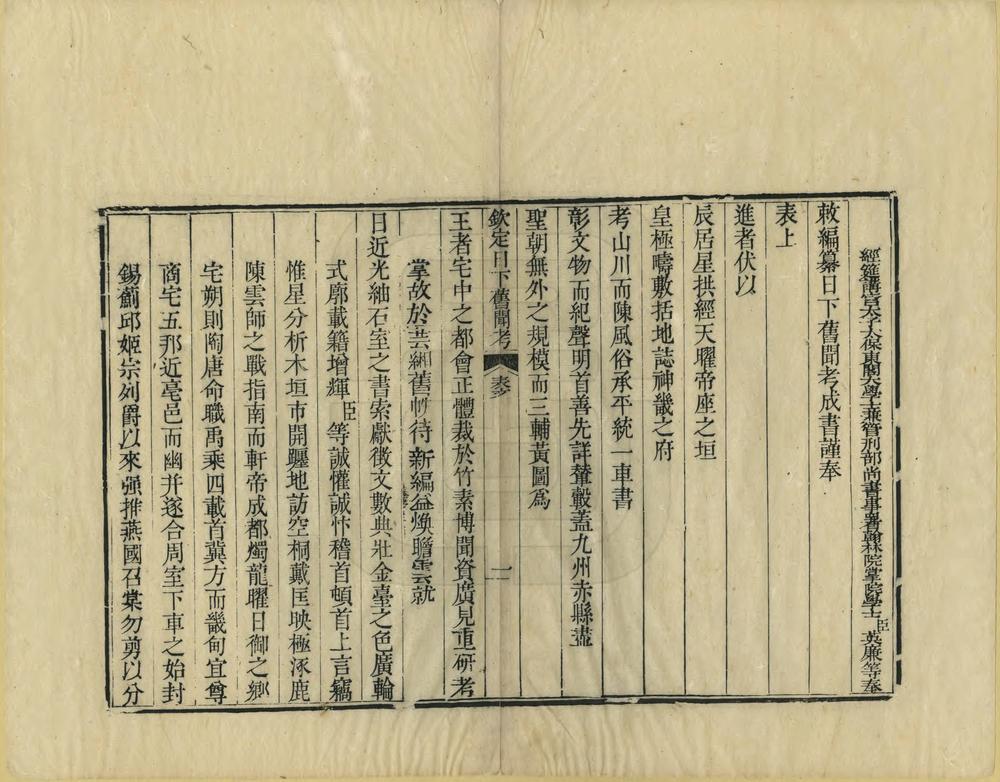 經筵講官太子太保東閣大學士兼管刑部尚書事署翰林院掌院學士臣英廉等奉
敕編纂日下舊聞考成書謹奉
表上
進者伏以
辰居星拱經天曜帝座之垣
皇極疇敷括地誌神畿之府
考山川而陳風俗承平統一車書
彰文物而紀聲明首善先詳輦轂蓋九州赤縣盡
聖朝無外之規模而三輔黃圖為
欽定日下舊聞考 表 一
王者宅中之都會正體裁於竹素博聞資廣見重研考
掌故於芸緗舊帙待新編益煥瞻雲就
日近光紬石室之書索獻徵文數典壯金臺之色廣輪
式廓載籍增輝臣等誠懽誠忭稽首頓首上言竊
惟星分析木垣市開躔地訪空桐戴匡映極涿鹿
陳雲師之戰指南而軒帝成都燭龍曜日御之鄉
宅朔則陶唐命職禹乘四載首冀方而畿甸宜尊
商宅五邦近亳邑而幽并遂合周室下車之始封
錫薊邱姬宗列爵以來强推燕國召棠勿剪以分